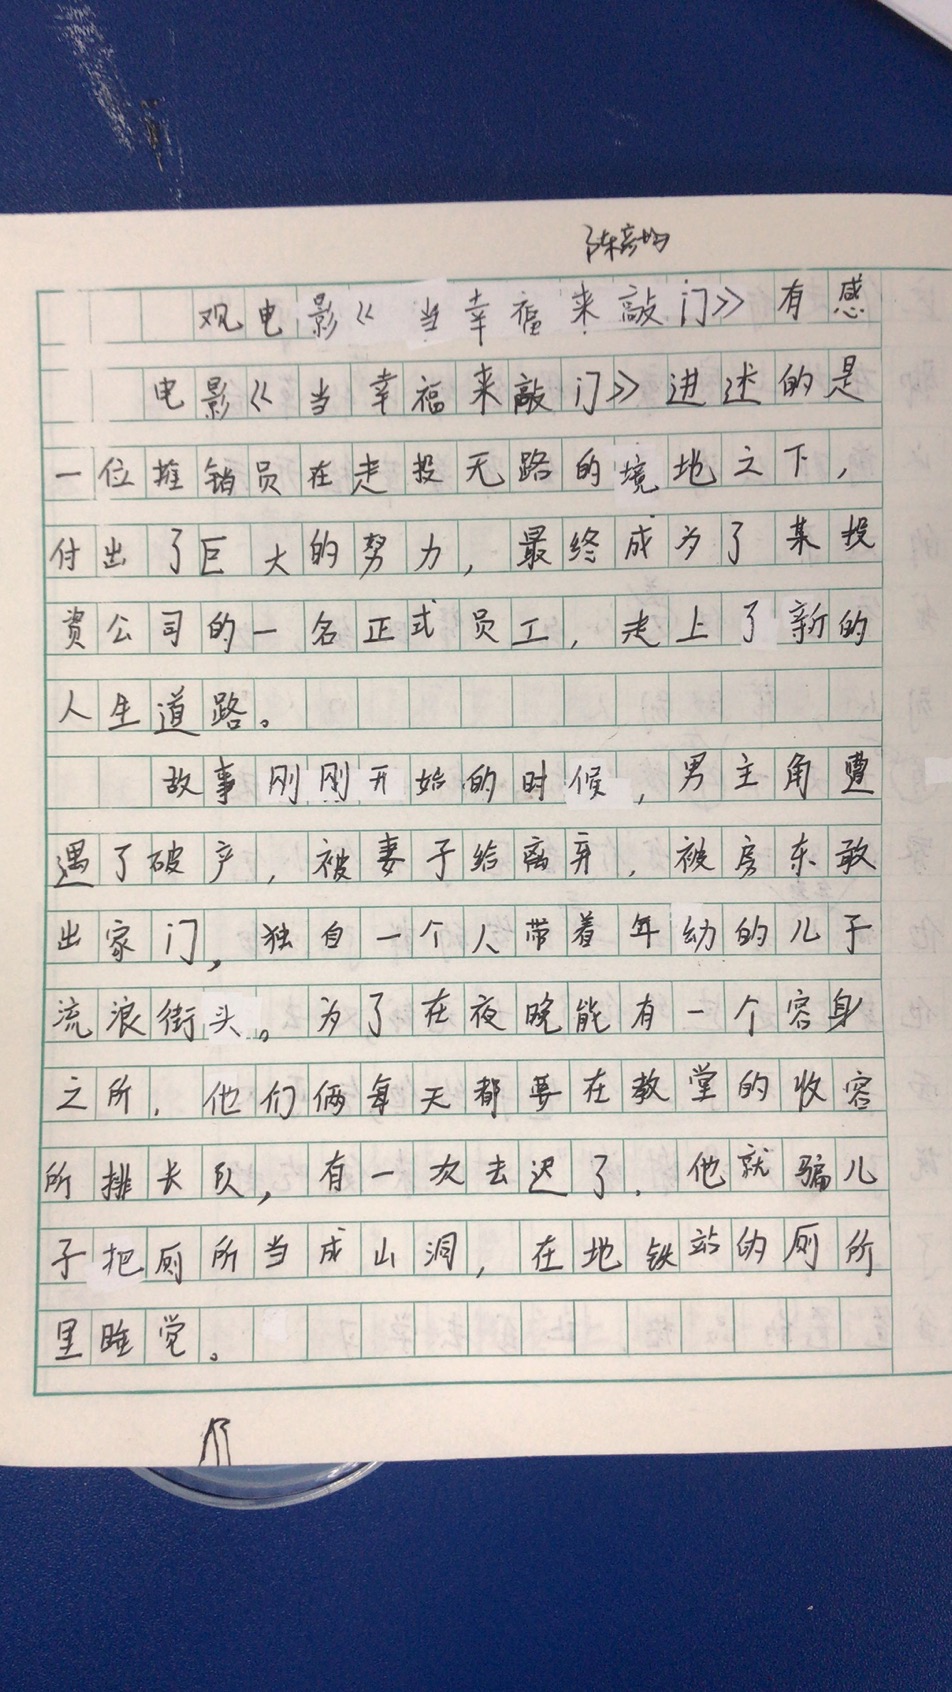 观电影《当幸福来敲门》有感
电影《当幸福来敲门》讲述的是
一位推销员在走投无路的境地之下，
付出了巨大的努力，最终成为了某投
资公司的一名正式员工，走上了新的
人生道路。
故事刚刚开始的时候，男主角遭
遇了破产，被妻子给离弃，被房东敢
出家门，独自一个人带着年幼的儿子
流浪街头。为了在夜晚能有一个容身
之所，他们俩每天都要在教堂的收容
所排长队，有一次去迟了，他就骗儿
子把厕所当成山洞，在地铁站的厕所
里睡觉。